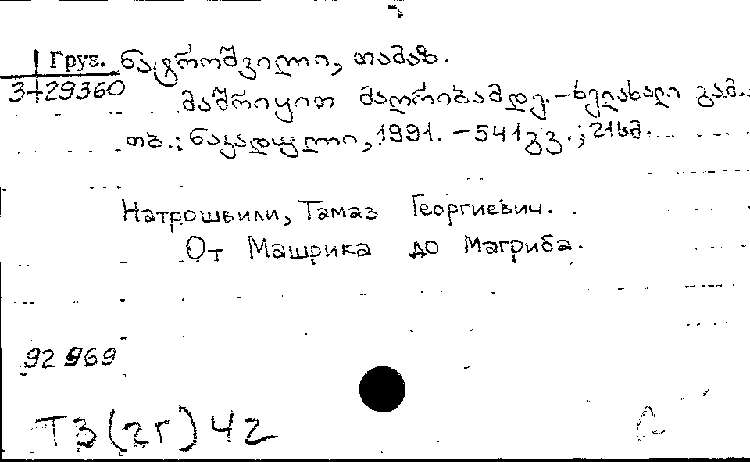 Груз. ნატროშვილი, თამაზ.
3-29360 მაშრიყით მაღრიბამდე. – ხელახალი გამ.
თბ.: ნაკადული, 1991. – 541 გვ.; 21 სმ.
Натрошвили, Тамаз Георгиевич.
От Машрика до Магриба.
92 969
Т3(2Г)42